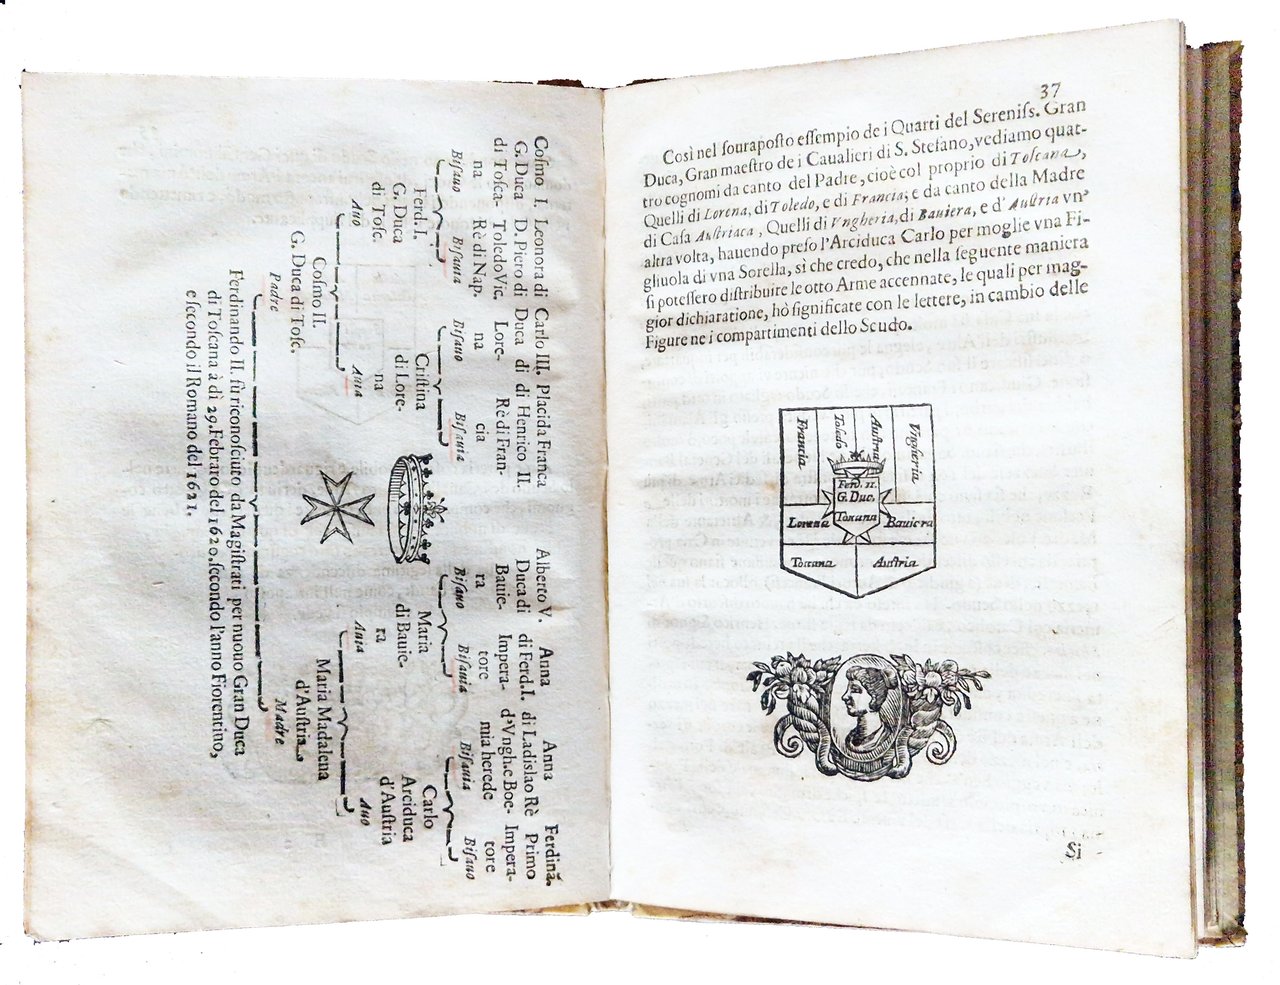 Coſmo I. Leonora di Carlo III. Placida Franca Alberto V. Anna Anna Ferdinã.
G. Duca D. Piero di Duca di di Henrico II. Duca di di Ferd. I. di Ladislao Rè Primo
di Toſca- Toledo Vic. Lore- Rè di Fran- Bauie- Impera- d'Vngh. e Boe- Impera-
na Rè di Nap. na cia ra tore mia herede tore
Biſauo Biſauia Biſauo Biſauia Biſauo Biſauia Biſauia Biſauo
Ferd. I. Criſtina Maria Carlo
G. Duca di Lore- di Bauie- Arciduca
di Toſc. na ra d'Auſtria
Auo Auia Auia Auo
Coſmo II. Maria Madalena
G. Duca di Toſc. d'Auſtria
Padre Madre
Ferdinando II. fù riconoſciuto da Magiſtrati per nuouo Gran Duca
di Toſcana à dì 29. Febraro del 1620. ſecondo l'anno Fiorentino,
e ſecondo il Romano del 1621.
37
Così nel ſourapoſto eſſempio de i Quarti del Sereniſs. Gran
Duca, Gran maeſtro de i Caualieri di S. Stefano, vediamo quat-
tro cognomi da canto del Padre, cioè col proprio di Toſcana,
Quelli di Lorena, di Toledo, e di Francia; e da canto della Madre
di Caſa Auſtriaca, Quelli di Vngheria, di Bauiera, e d'Auſtria vn'
altra volta, hauendo preſo l'Arciduca Carlo per moglie vna Fi-
gliuola di vna Sorella, sì che credo, che nella ſeguente maniera
ſi poteſſero diſtribuire le otto Arme accennate, le quali per mag-
gior dichiaratione, hò ſignificate con le lettere, in cambio delle
Figure ne i compartimenti dello Scudo.
Francia Toledo Auſtria Vngheria
Ferd. II.
G. Duc.
Lorena Toscana Bauiera
Toscana Auſtria
Si